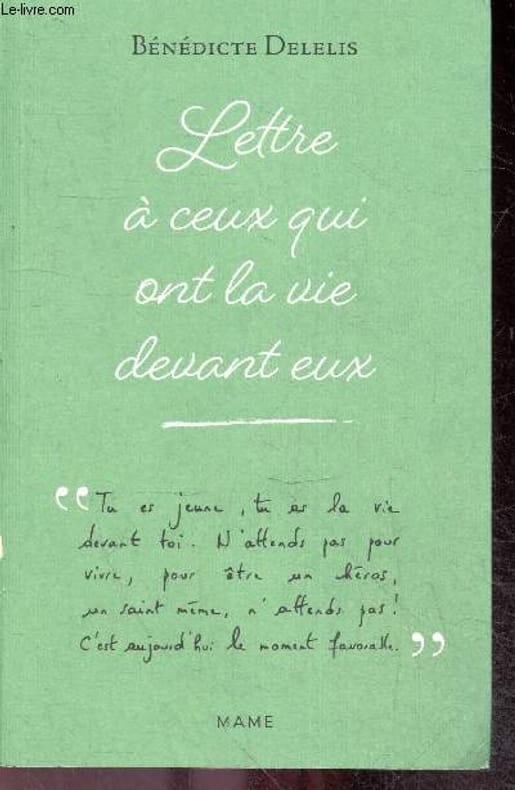 Le-livre.com
BÉNÉDICTE DELELIS
Lettre
à ceux qui
ont la vie
devant eux
“ Tu es jeune, tu as la vie
devant toi. N'attends pas pour
vivre, pour être un héros,
un saint même, n'attends pas !
C'est aujourd'hui le moment favorable. ”
MAME